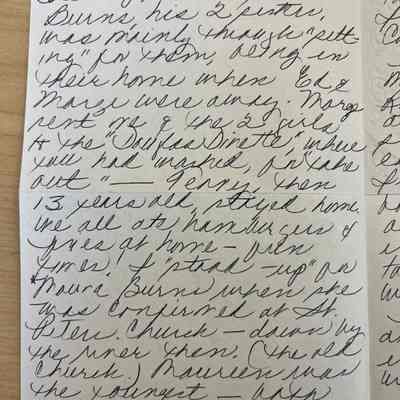 Burns, his 2 sisters,
was mainly through "sitt-
ing" for them, being in
their home when Ed &
Marge were away. Marge
sent me & the 2 girls
to the "Doufas Dinette", where
you had worked, for take
out" — Terry, then
13 years old, stayed home.
We all ate hamburgers &
fries at home – fun
times. I "stood-up" for
Maura Burns when she
was confirmed at St.
Peters Church – down by
the river then. (the old
Church) Maureen was
the youngest – both